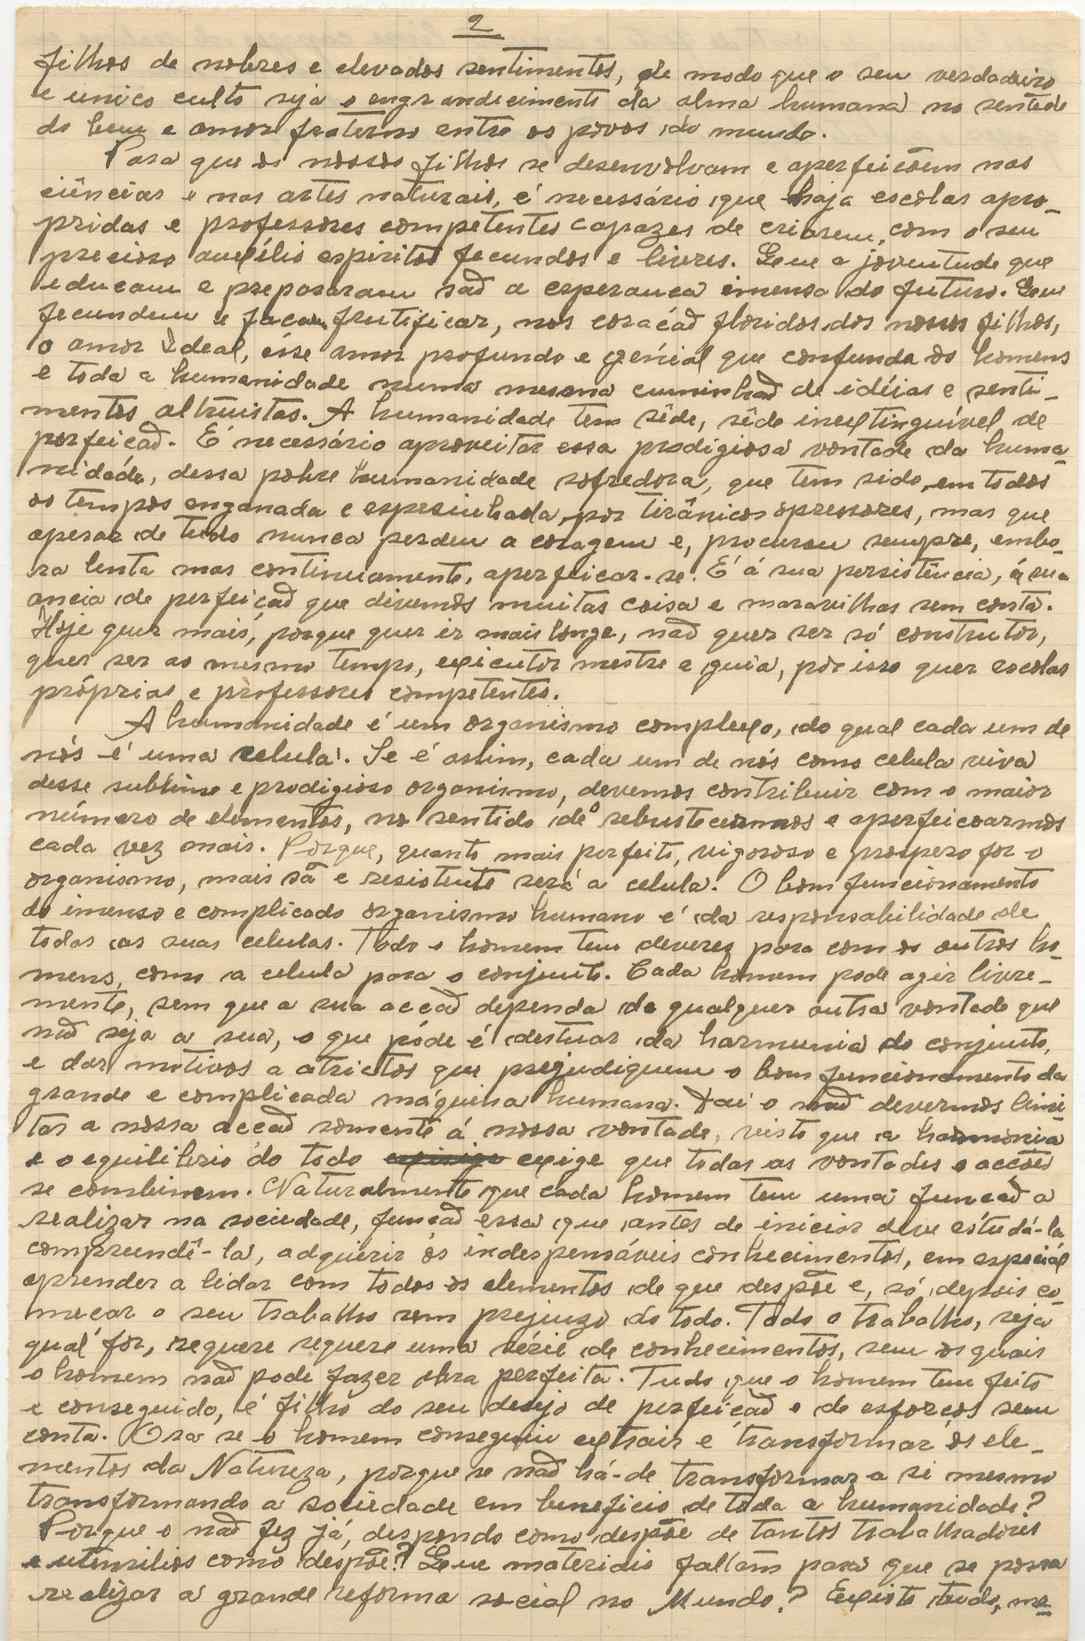 2
filhos de nobres e elevados sentimentos, de modo que o seu verdadeiro
e unico culto seja o engrandecimento da alma humana no sentido
do bem e amor fraterno entre os povos do mundo.
Para que os nossos filhos se desenvolvam e aperfeicôem nas
ciências e nas artes naturais, é necessário que haja escolas apro-
pridas e professores competentes capazes de criarem, com o seu
precioso auxílio espiritos fecundos e livres. Que a joventude que
educam e preparam são a esperanca imensa do futuro. Que
fecundem e façam frutificar, nos coração floridos dos nossos filhos,
o amor Ideal, êsse amor profundo e genial que confunda os homens
e toda a humanidade numa mesma cuminhão de idéias e senti-
mentos altruistas. A humanidade tem sêde, sêde inextinguível de
perfeicão. É necessário aproveitar essa prodigiosa vontade da huma-
nidade, dessa pobre humanidade sofredora, que tem sido, em todos
os tempos enganada e espesinhada por tirânicos opressores, mas que
apesar de tudo nunca perdeu a coragem e, procurou sempre, embo-
ra lenta mas continuamente, aperfeicar-se. É á sua persistência, á sua
ancia de perfeicão que divemos muitas coisa e maravilhas sem conta.
Hoje quer mais, porque quer ir mais longe, não quer ser só construtor,
quer ser ao mesmo tempo, exicutor mestre e guia, por isso quer escolas
próprias e professores competentes.
A humanidade é um organismo complexo, do qual cada um de
nós é uma celula. Se é assim, cada um de nós como celula viva
desse sublime e prodigioso organismo, devemos contribuir com o maior
número de elementos, no sentido de o rebustecermos e aperfeicoarmos
cada vez mais. Porque, quanto mais perfeito, vigoroso e prospero for o
organismo, mais sã e resistente será a celula. O bom funcionamento
do imenso e complicado organismo humano é da responsabilidade de
todas as suas celulas. Todo o homem tem deveres para com os outros ho-
mens, como a celula para o conjunto. Cada homem pode agir livre-
mente, sem que a sua accão dependa da qualquer outra vontade que
não seja a sua, o que póde é destuar da harmunia do conjunto,
e dar motivos a atrictos que prejudiquem o bom funcionamento da
grande e complicada máquina humana. Daí o não devermos limi-
tar a nossa accão somente á nossa vontade, visto que a harmonia
e o equilibrio do todo exige que todas as vontades e accões
se combinem. Naturalmente que cada homem tem uma funcão a
realizar na sociedade, funcão essa que antes de iniciar deve estudá-la
compreendê-la, adquirir os indespensáveis conhecimentos, em especial
aprender a lidar com todos os elementos de que despõe e, só, depois co-
mecar o seu trabalho sem prejuizo do todo. Todo o trabalho, seja
qual for, requere requere uma série de conhecimentos, sem os quais
o homem não pode fazer obra perfeita. Tudo que o homem tem feito
e conseguido, é filho do seu desejo de perfeicão e de esforcos sem
conta. Ora se o homem conseguiu extrair e transformar os ele-
mentos da Natureza, porque se não há-de transformar a si mesmo
transformando a sociedade em beneficio de toda a humanidade?
Porque o não fez já, despondo como despõe de tantos trabalhadores
e utensilios como despõe? Que materiais faltam para que se possa
realizar a grande reforma social no Mundo? Existe tudo, me-